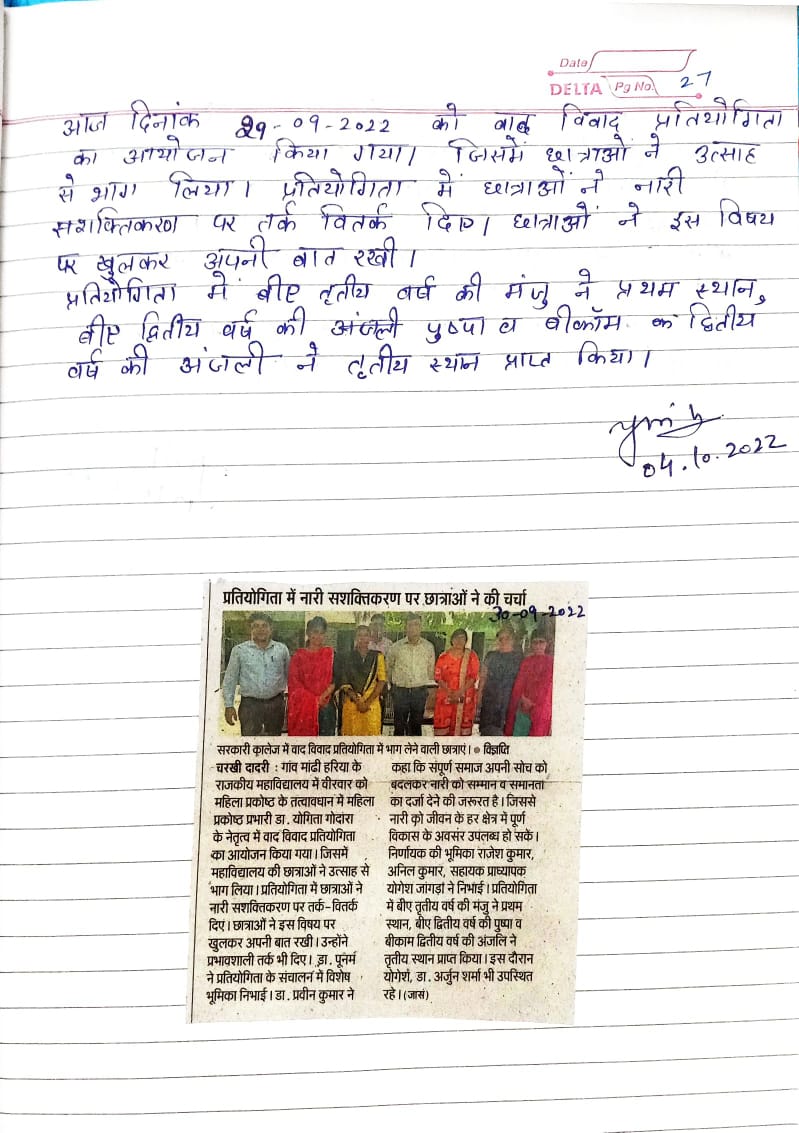 Date
DELTA Pg No. 27
आज दिनांक 29-09-2022 को वाद विवाद प्रतियोगिता
का आयोजन किया गया। जिसमें छात्राओं ने उत्साह
से भाग लिया। प्रतियोगिता में छात्राओं ने नारी
सशक्तिकरण पर तर्क वितर्क दिए। छात्राओं ने इस विषय
पर खुलकर अपनी बात रखी।
प्रतियोगिता में बीए तृतीय वर्ष की मंजु ने प्रथम स्थान,
बीए द्वितीय वर्ष की अंजली पुष्पा व बीकॉम क द्वितीय
वर्ष की अंजली ने तृतीय स्थान प्राप्त किया।
04.10.2022
प्रतियोगिता में नारी सशक्तिकरण पर छात्राओं ने की चर्चा
30-09-2022
सरकारी कालेज में वाद विवाद प्रतियोगिता में भाग लेने वाली छात्राएं। ● विज्ञप्ति
चरखी दादरी : गांव मांढी हरिया के
राजकीय महाविद्यालय में वीरवार को
महिला प्रकोष्ठ के तत्वावधान में महिला
प्रकोष्ठ प्रभारी डा. योगिता गोदारा
के नेतृत्व में वाद विवाद प्रतियोगिता
का आयोजन किया गया। जिसमें
महाविद्यालय की छात्राओं ने उत्साह से
भाग लिया। प्रतियोगिता में छात्राओं ने
नारी सशक्तिकरण पर तर्क-वितर्क
दिए। छात्राओं ने इस विषय पर
खुलकर अपनी बात रखी। उन्होंने
प्रभावशाली तर्क भी दिए। डा. पूनम
ने प्रतियोगिता के संचालन में विशेष
भूमिका निभाई। डा. प्रवीन कुमार ने
कहा कि संपूर्ण समाज अपनी सोच को
बदलकर नारी को सम्मान व समानता
का दर्जा देने की जरूरत है। जिससे
नारी को जीवन के हर क्षेत्र में पूर्ण
विकास के अवसर उपलब्ध हो सकें।
निर्णायक की भूमिका राजेश कुमार,
अनिल कुमार, सहायक प्राध्यापक
योगेश जांगड़ा ने निभाई। प्रतियोगिता
में बीए तृतीय वर्ष की मंजु ने प्रथम
स्थान, बीए द्वितीय वर्ष की पुष्पा व
बीकाम द्वितीय वर्ष की अंजलि ने
तृतीय स्थान प्राप्त किया। इस दौरान
योगेश, डा. अर्जुन शर्मा भी उपस्थित
रहे। (जासं)